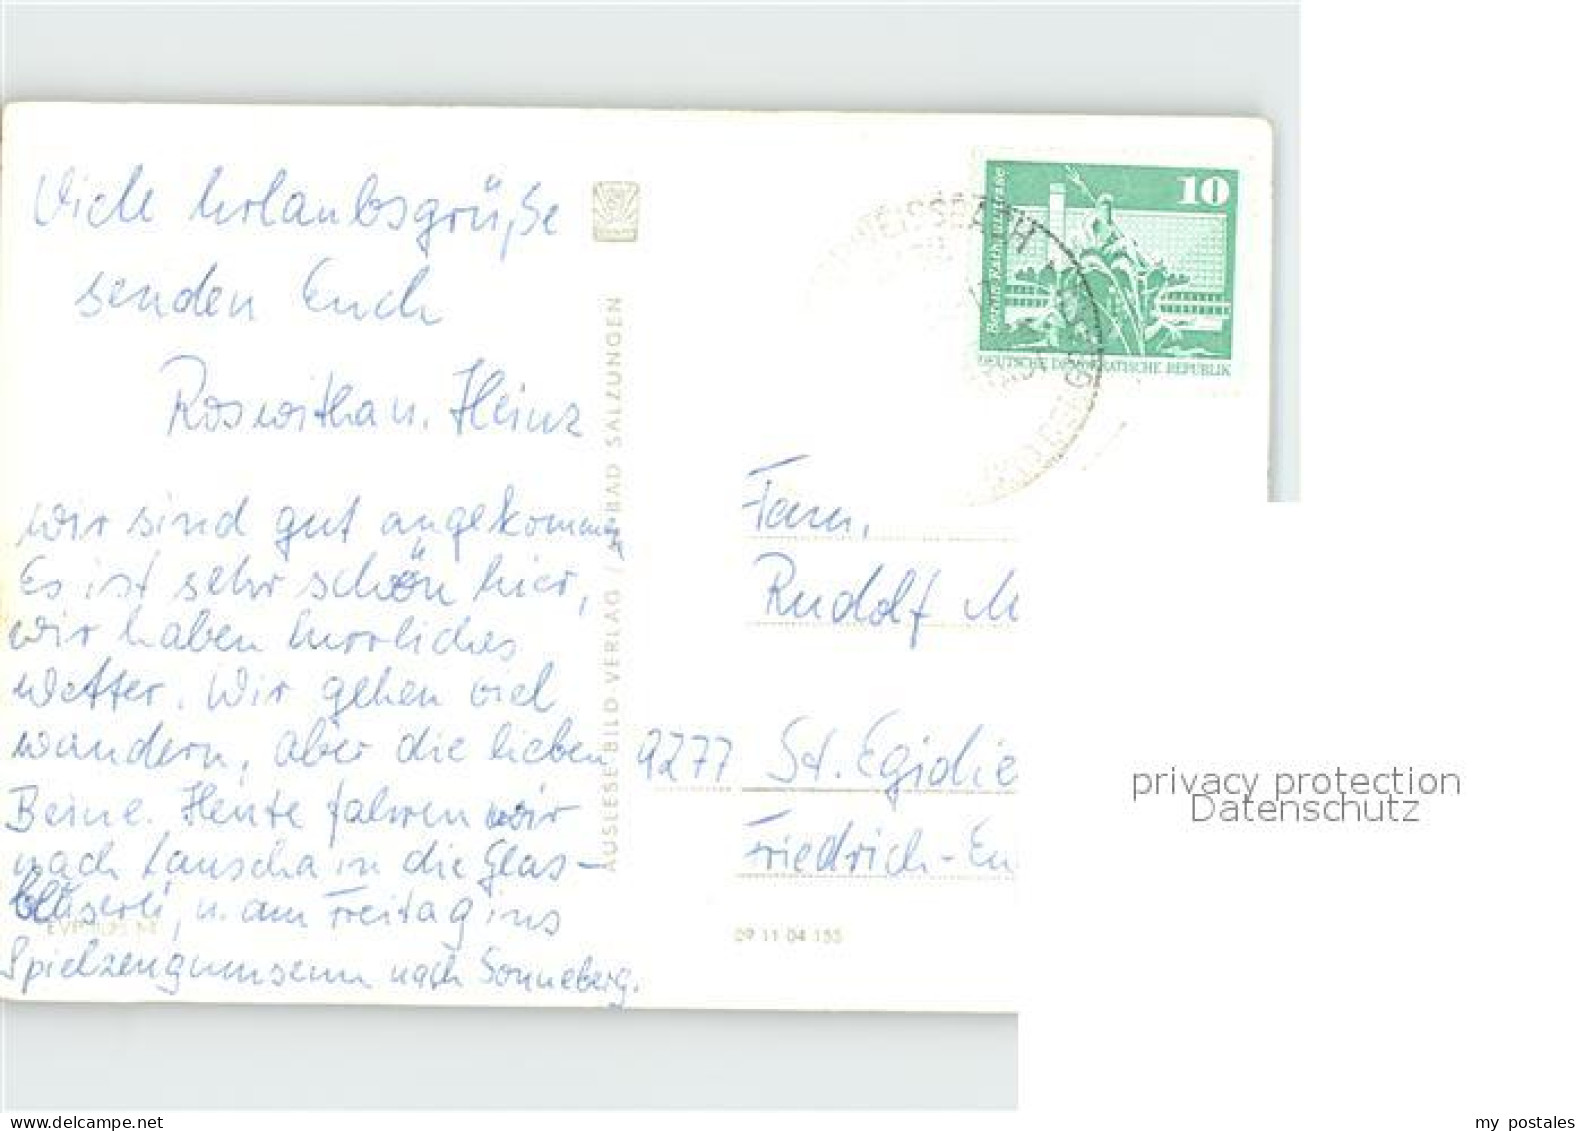 Viele Urlaubsgrüße
senden Euch
Roswitha u. Heinz
wir sind gut angekommen
Es ist sehr schön hier,
wir haben herrliches
Wetter. Wir gehen viel
wandern, aber die lieben
Beine. Heute fahren wir
nach Lauscha in die Glas-
bläserei, u. am Freitag ins
Spielzeugmuseum nach Sonneberg.
AUSLESE-BILD-VERLAG / BAD SALZUNGEN
10
Berlin, Rathausstraße
DEUTSCHE DEMOKRATISCHE REPUBLIK
WEISSBACH
Fam.
Rudolf M
9277 St. Egidie
Friedrich-En
09 11 04 155
privacy protection
Datenschutz
my postales
www.delcampe.net